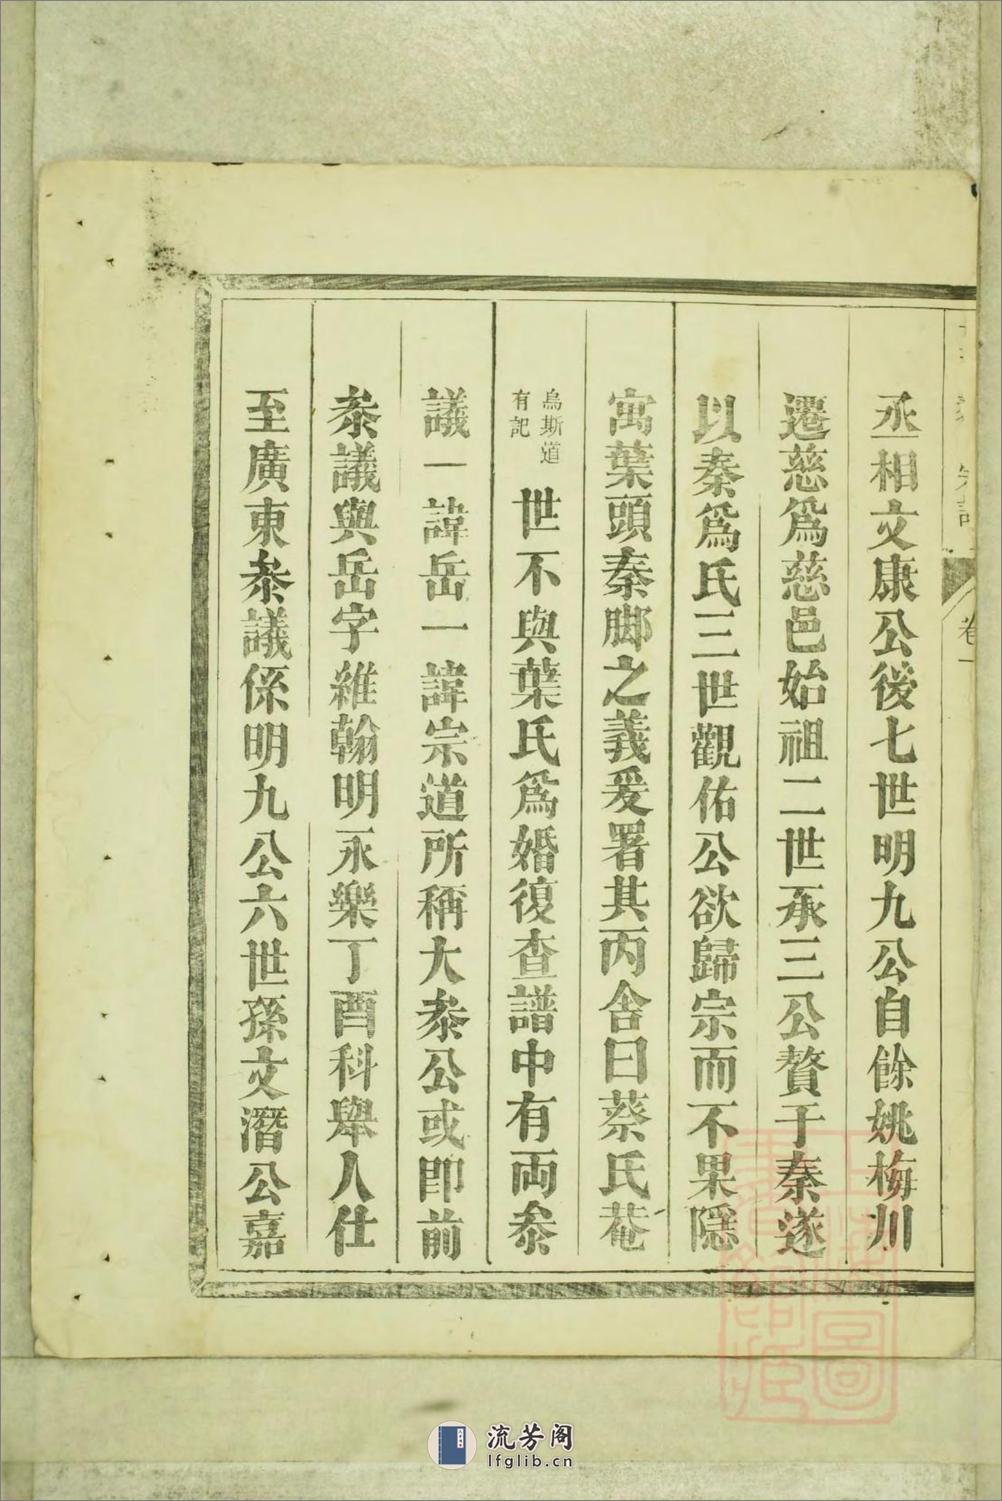 卷一
丞相文康公後七世明九公自餘姚梅川
遷慈爲慈邑始祖二世承三公贅于秦遂
以秦爲氏三世觀佑公欲歸宗而不果隱
寓葉頭秦脚之義爰署其丙舍曰蔡氏菴
烏斯道
有記
世不與葉氏爲婚復查譜中有両叅
議一諱岳一諱宗道所稱大叅公或即前
叅議與岳字維翰明永樂丁酉科舉人仕
至廣東叅議係明九公六世孫文潛公嘉
流芳阁
lfglib.cn